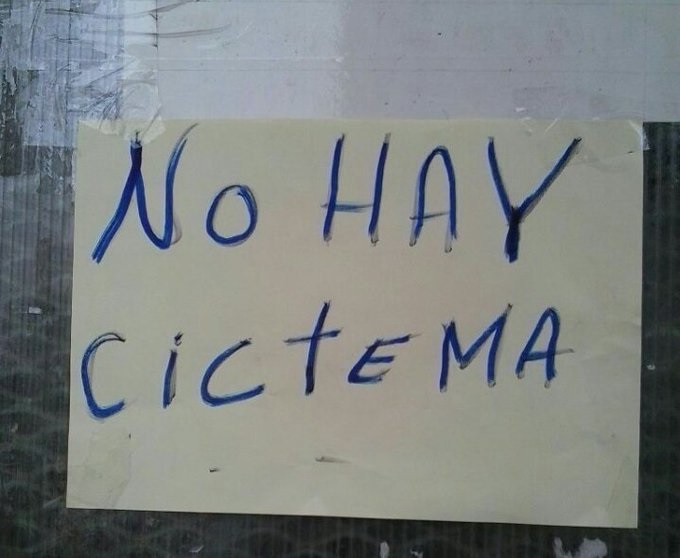 No HAY
CicteMA